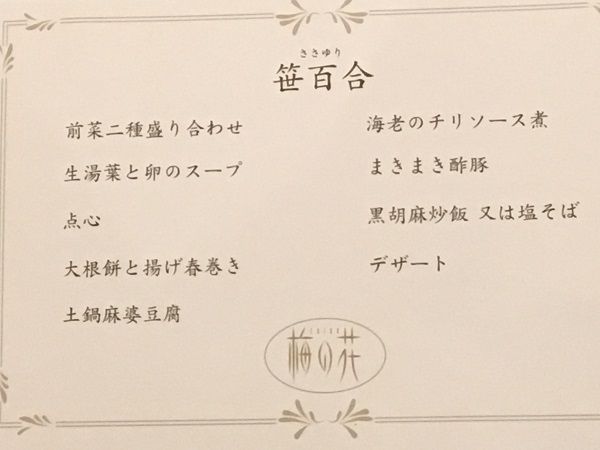 ささゆり
笹百合
前菜二種盛り合わせ
生湯葉と卵のスープ
点心
大根餅と揚げ春巻き
土鍋麻婆豆腐
海老のチリソース煮
まきまき酢豚
黒胡麻炒飯 又は塩そば
デザート
梅の花